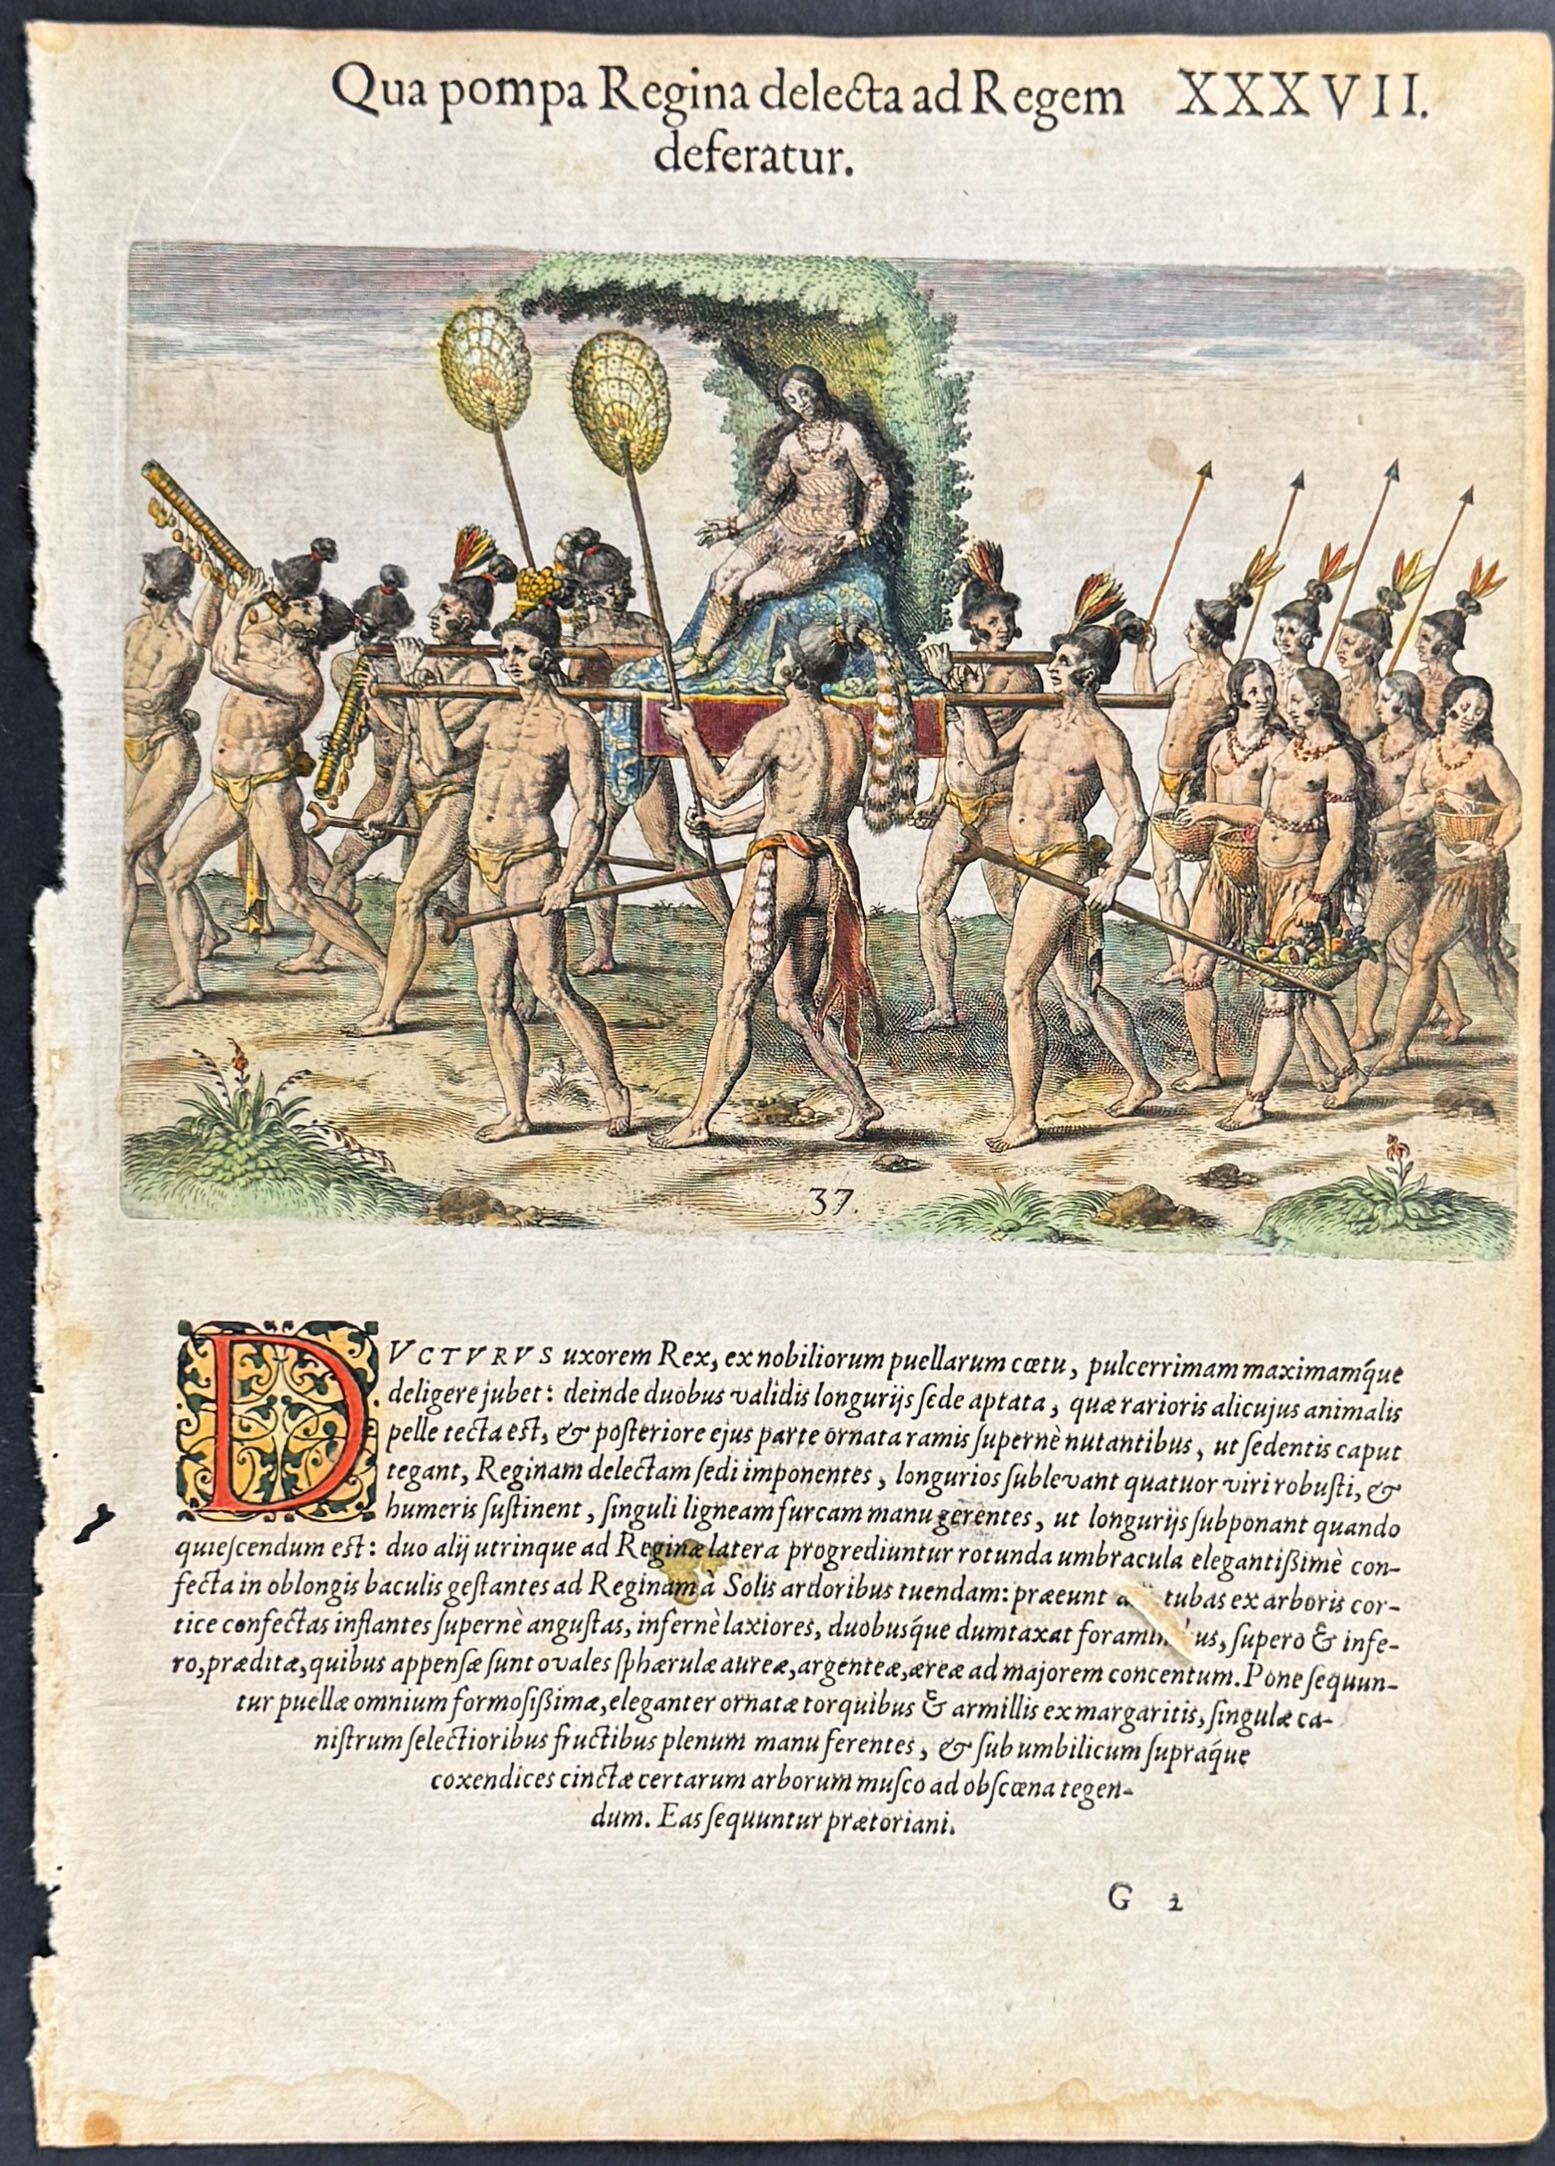 Qua pompa Regina delecta ad Regem XXXVII.
deferatur.
37.
DVCTVRVS uxorem Rex, ex nobiliorum puellarum cœtu, pulcerrimam maximamq́ue
deligere jubet: deinde duobus validis longurijs sede aptata, quæ rarioris alicujus animalis
pelle tecta est, & posteriore ejus parte ornata ramis supernè nutantibus, ut sedentis caput
tegant, Reginam delectam sedi imponentes, longurios sublevant quatuor viri robusti, &
humeris sustinent, singuli ligneam furcam manu gerentes, ut longurijs subponant quando
quiescendum est: duo alij utrinque ad Reginæ latera progrediuntur rotunda umbracula elegantißimè con-
fecta in oblongis baculis gestantes ad Reginam à Solis ardoribus tuendam: præeunt tubas ex arboris cor-
tice confectas inflantes supernè angustas, infernè laxiores, duobusq́ue dumtaxat supero & infe-
ro, præditæ, quibus appensæ sunt ovales sphærulæ aureæ, argenteæ, æreæ ad majorem concentum. Pone sequun-
tur puellæ omnium formosißimæ, eleganter ornatæ torquibus & armillis ex margaritis, singulæ ca-
nistrum selectioribus fructibus plenum manu ferentes, & sub umbilicum supraq́ue
coxendices cinctæ certarum arborum musco ad obscœna tegen-
dum. Eas sequuntur prætoriani.
G 2